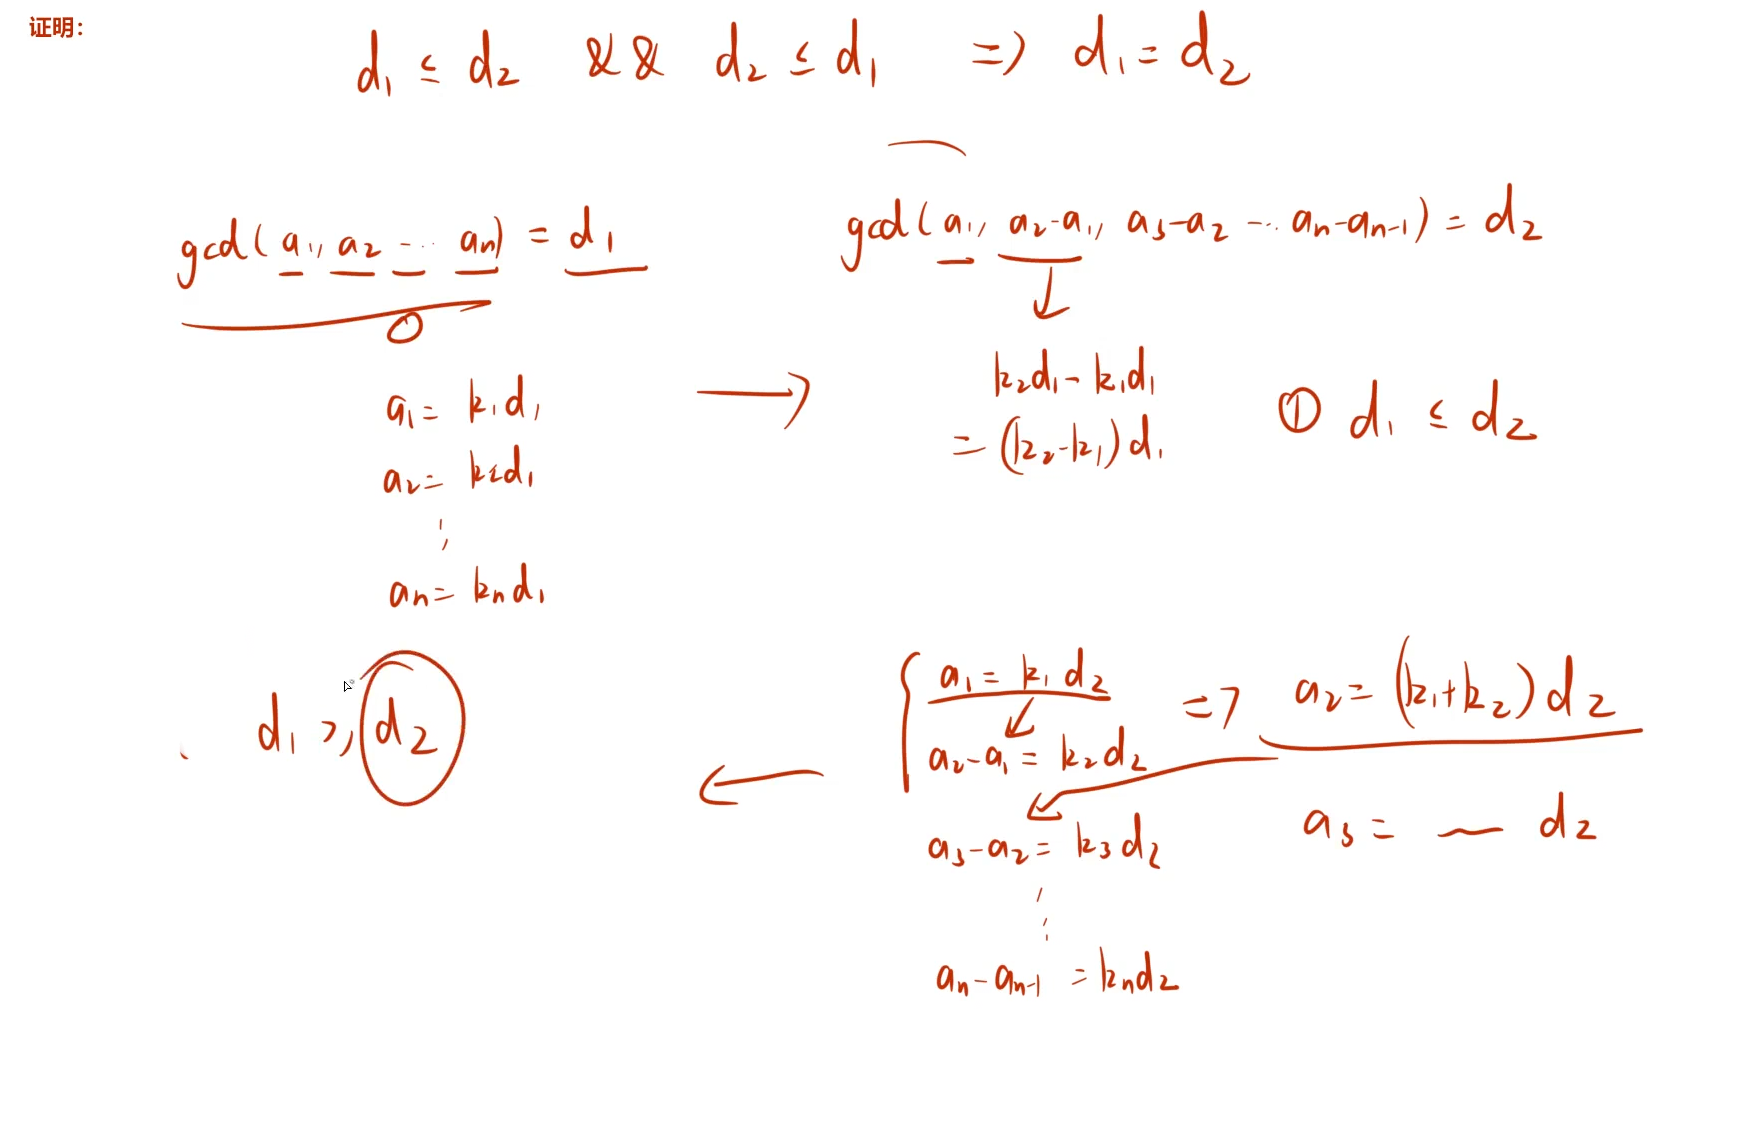 证明：
d₁ ≤ d₂ && d₂ ≤ d₁ => d₁ = d₂
gcd(a₁, a₂ … aₙ) = d₁
gcd(a₁, a₂-a₁, a₃-a₂ … aₙ-aₙ₋₁) = d₂
a₁ = k₁d₁
a₂ = k₂d₁
⋮
aₙ = kₙd₁
→
↓
k₂d₁ - k₁d₁
= (k₂-k₁)d₁
① d₁ ≤ d₂
a₁ = k₁d₂
a₂-a₁ = k₂d₂
=> a₂ = (k₁+k₂)d₂
a₃-a₂ = k₃d₂
a₃ = ⁓ d₂
⋮
aₙ-aₙ₋₁ = kₙd₂
←
d₁ ≥ d₂